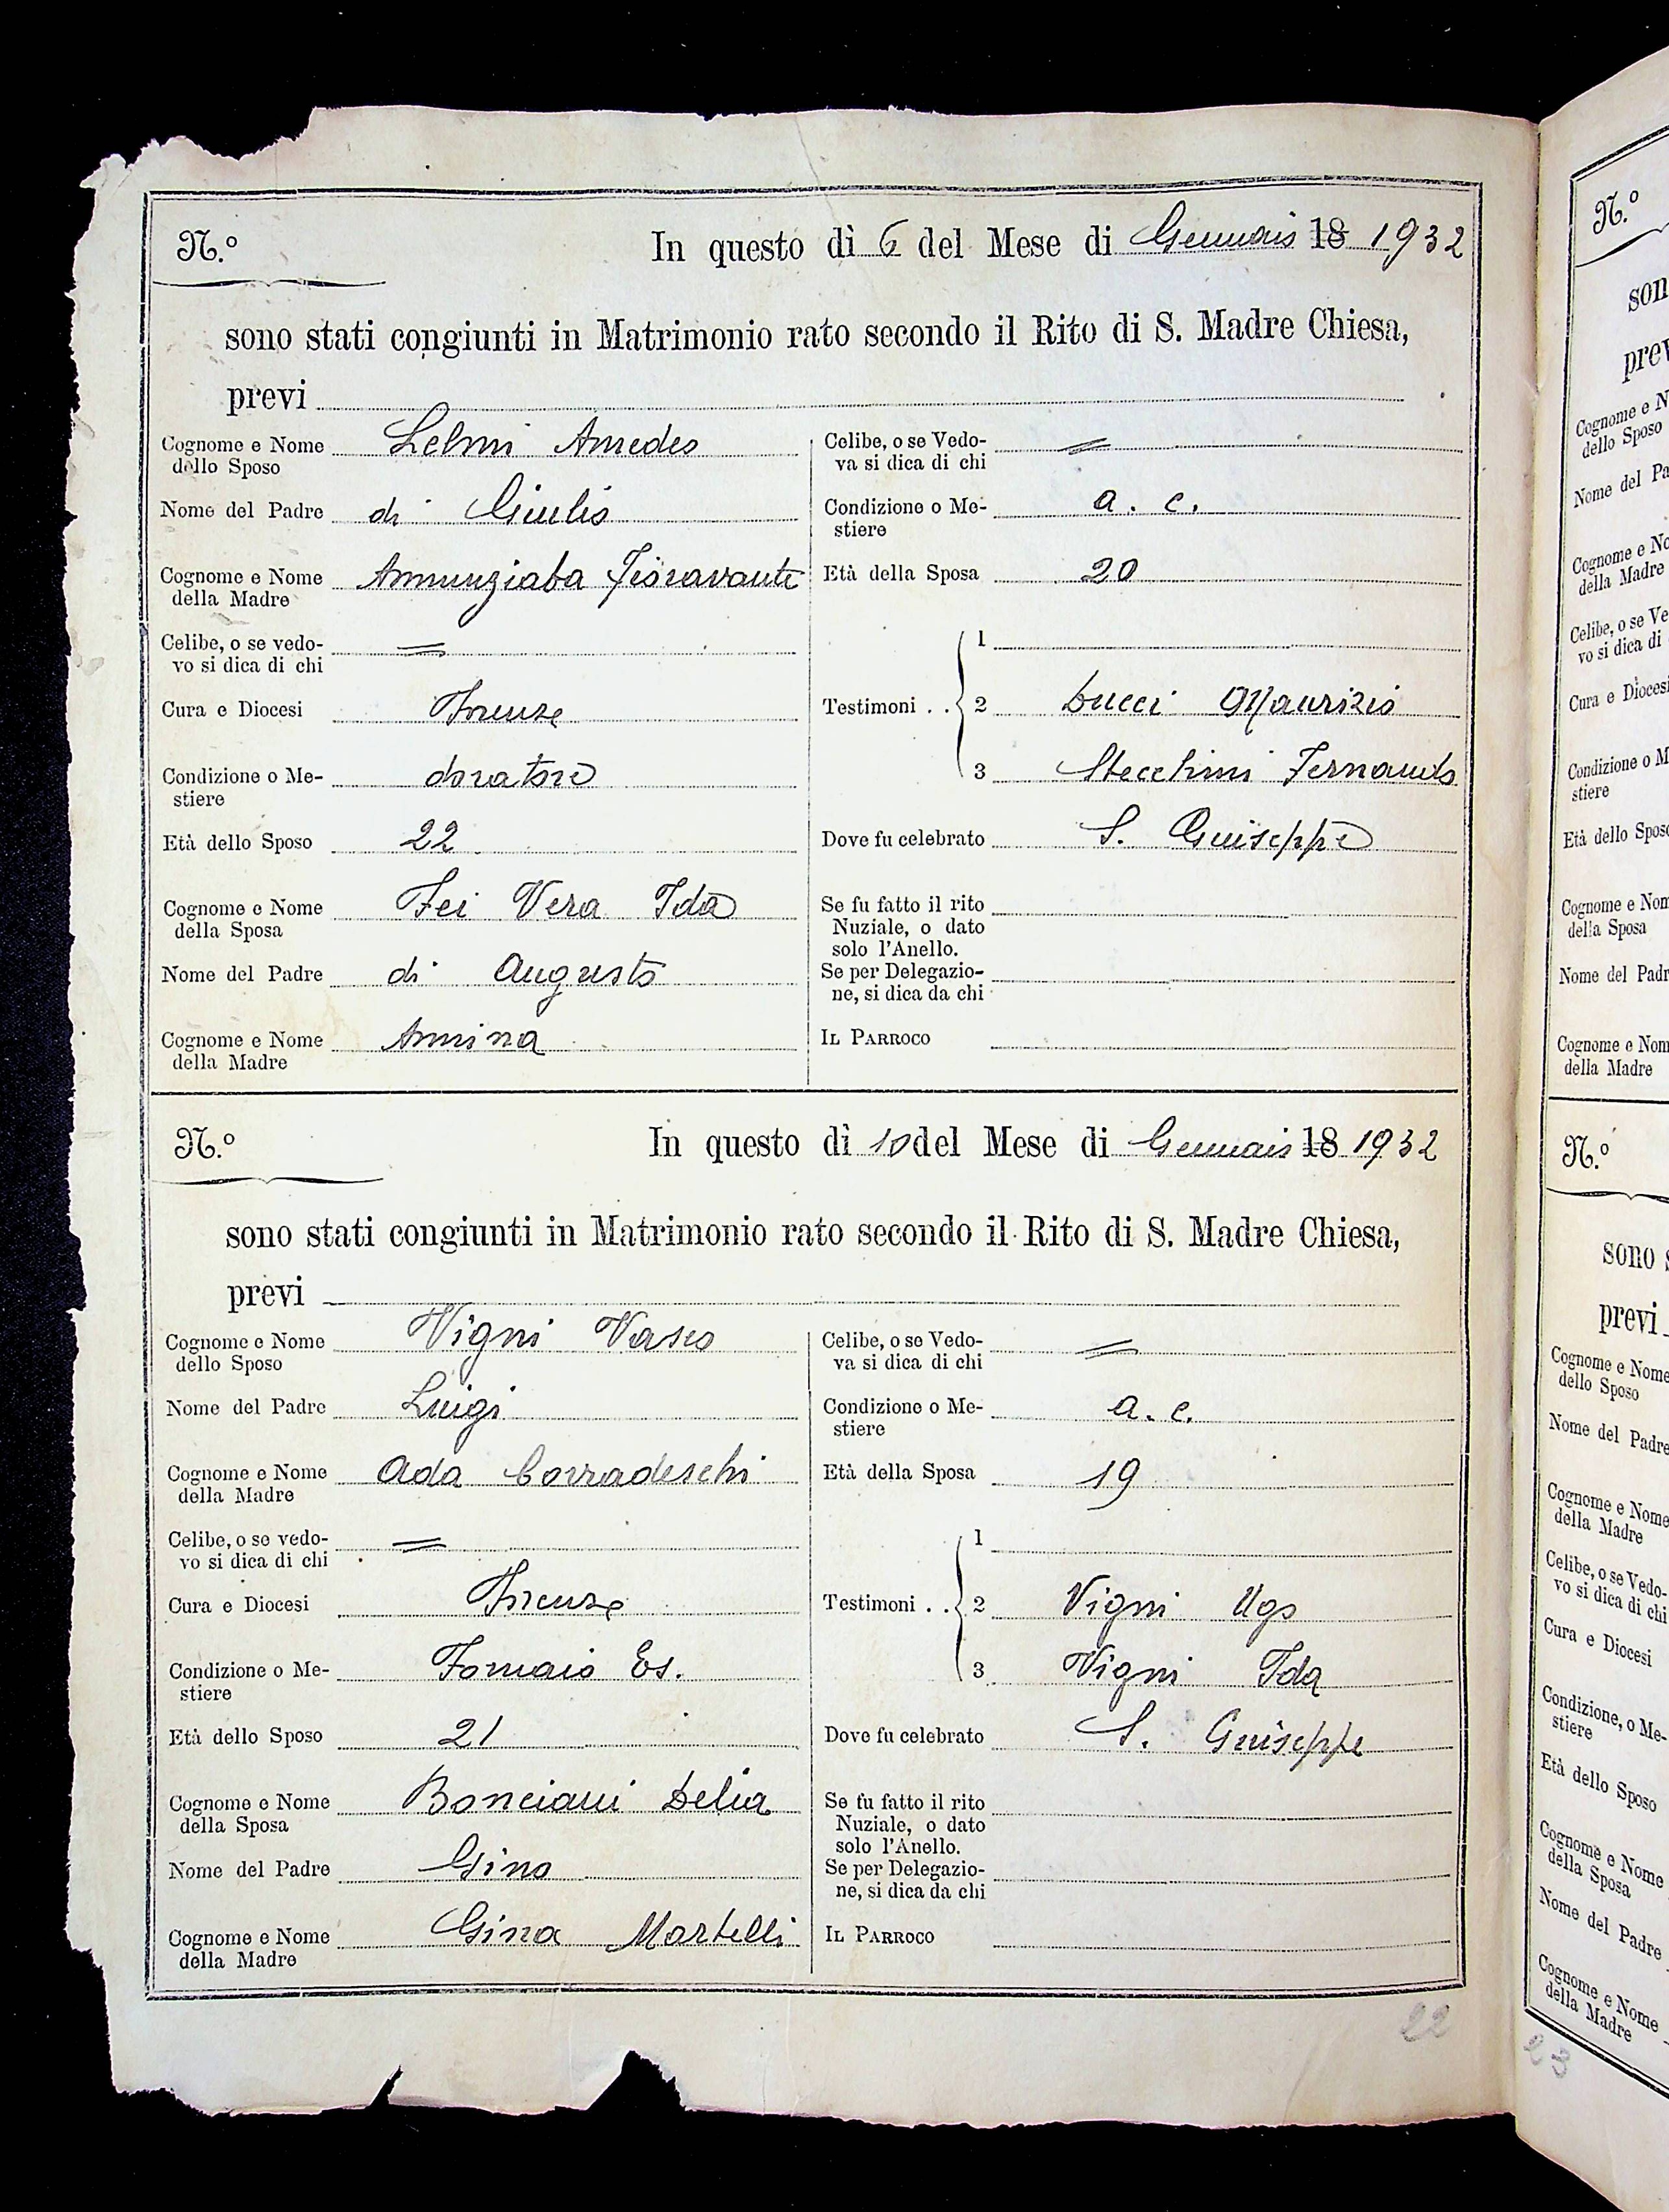 N.º In questo dì 6 del Mese di Gennaio 18 1932
sono stati congiunti in Matrimonio rato secondo il Rito di S. Madre Chiesa,
previ
Cognome e Nome dello Sposo Lelmi Amedeo
Nome del Padre di Giulio
Cognome e Nome della Madre Annunziata Fioravanti
Celibe, o se vedovo si dica di chi =
Cura e Diocesi Firenze
Condizione o Mestiere doratore
Età dello Sposo 22
Cognome e Nome della Sposa Fei Vera Ida
Nome del Padre di Augusto
Cognome e Nome della Madre Annina
Celibe, o se Vedova si dica di chi =
Condizione o Mestiere a. c.
Età della Sposa 20
Testimoni . . 1
2 Ducci Maurizio
3 Stecchini Fernando
Dove fu celebrato S. Giuseppe
Se fu fatto il rito Nuziale, o dato solo l'Anello.
Se per Delegazione, si dica da chi
IL PARROCO
N.º In questo dì 10 del Mese di Gennaio 18 1932
sono stati congiunti in Matrimonio rato secondo il Rito di S. Madre Chiesa,
previ
Cognome e Nome dello Sposo Vigni Vasco
Nome del Padre Luigi
Cognome e Nome della Madre Ada Corradeschi
Celibe, o se vedovo si dica di chi =
Cura e Diocesi Firenze
Condizione o Mestiere Fornaio Es.
Età dello Sposo 21
Cognome e Nome della Sposa Bonciani Delia
Nome del Padre Gino
Cognome e Nome della Madre Gina Martelli
Celibe, o se Vedova si dica di chi =
Condizione o Mestiere a. c.
Età della Sposa 19
Testimoni . . 1
2 Vigni Ugo
3 Vigni Ida
Dove fu celebrato S. Giuseppe
Se fu fatto il rito Nuziale, o dato solo l'Anello.
Se per Delegazione, si dica da chi
IL PARROCO
22
N.º
son
prev
Cognome e N
dello Sposo
Nome del Pa
Cognome e No
della Madre
Celibe, o se Ve
vo si dica di
Cura e Diocesi
Condizione o M
stiere
Età dello Sposo
Cognome e Nom
della Sposa
Nome del Padr
Cognome e Nom
della Madre
N.º
sono s
previ
Cognome e Nome
dello Sposo
Nome del Padre
Cognome e Nome
della Madre
Celibe, o se Vedo-
vo si dica di chi
Cura e Diocesi
Condizione, o Me-
stiere
Età dello Sposo
Cognome e Nome
della Sposa
Nome del Padre
Cognome e Nome
della Madre
23